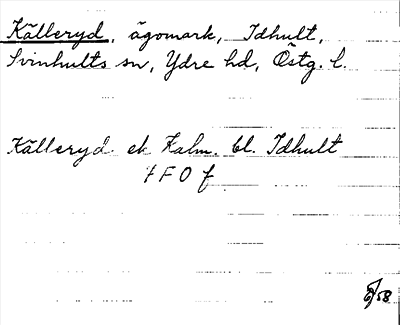 Källeryd, ägomark, Idhult,
Svinhults sn, Ydre hd, Östg. l.
Källeryd ek Kalm. bl. Idhult
FFO f
58